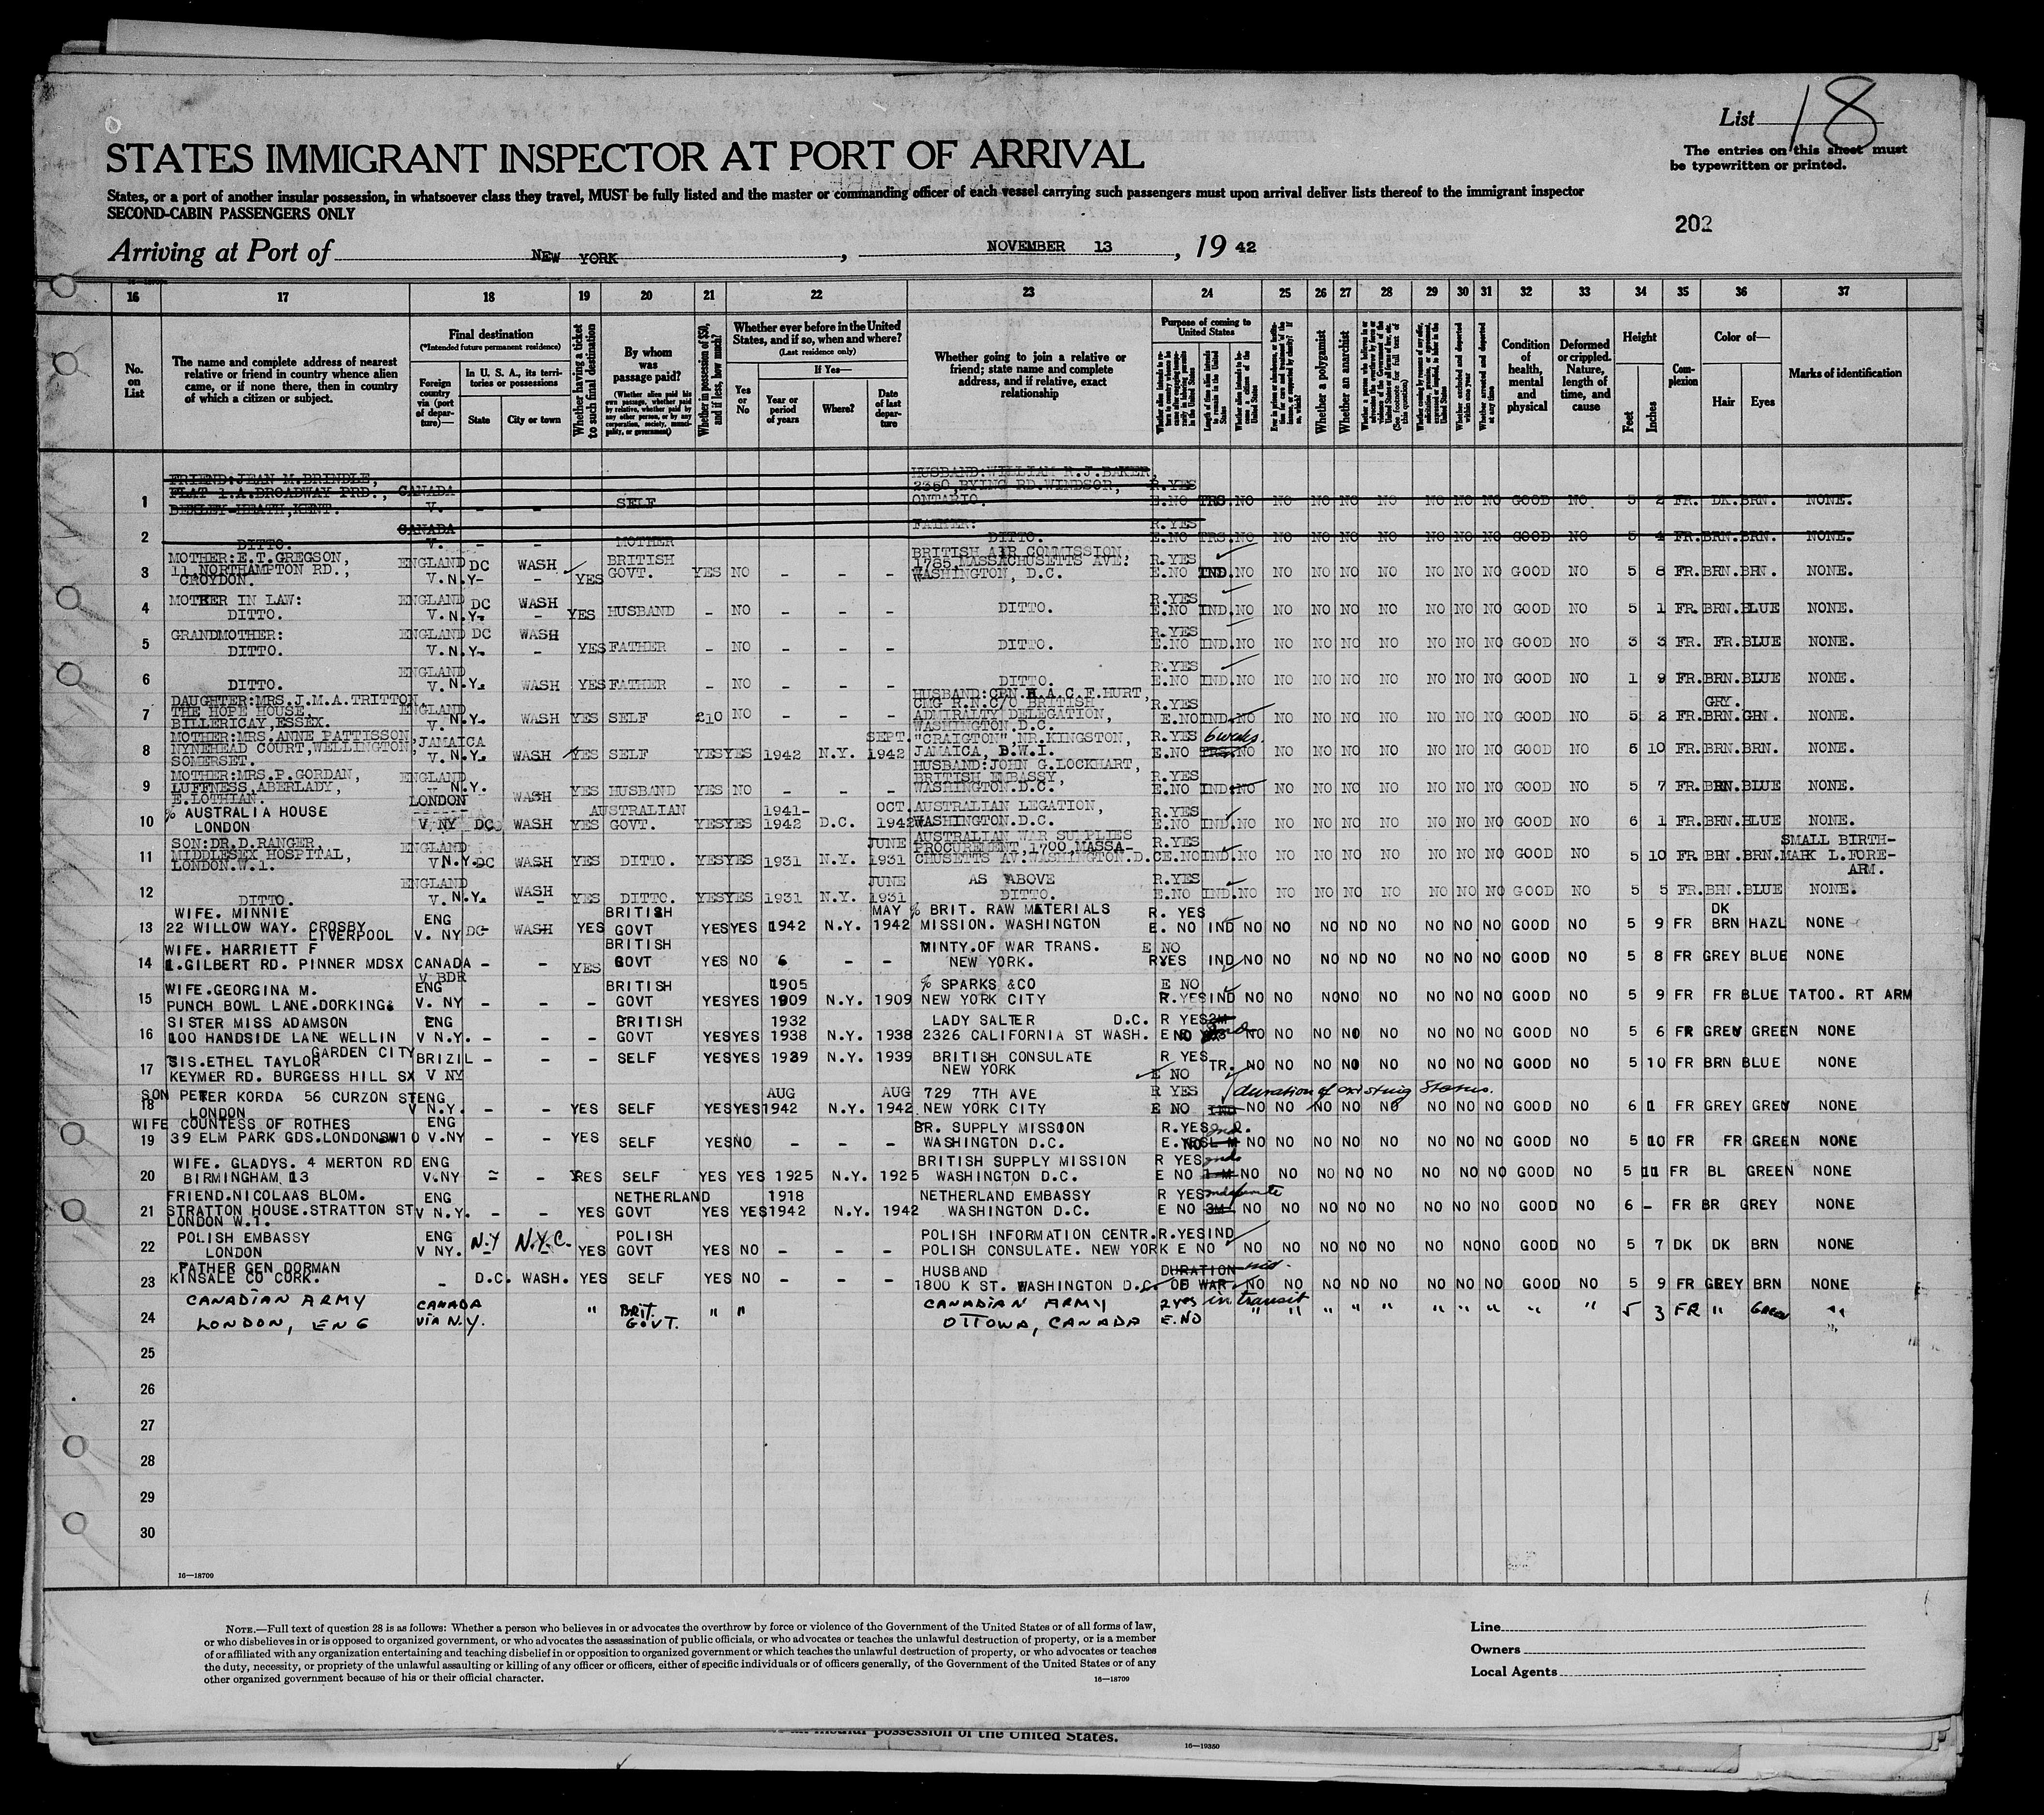 List 18
The entries on this sheet must
be typewritten or printed.
STATES IMMIGRANT INSPECTOR AT PORT OF ARRIVAL
States, or a port of another insular possession, in whatsoever class they travel, MUST be fully listed and the master or commanding officer of each vessel carrying such passengers must upon arrival deliver lists thereof to the immigrant inspector
SECOND-CABIN PASSENGERS ONLY
202
Arriving at Port of NEW YORK, NOVEMBER 13, 1942
16 17 18 19 20 21 22 23 24 25 26 27 28 29 30 31 32 33 34 35 36 37
No. on List
The name and complete address of nearest relative or friend in country whence alien came, or if none there, then in country of which a citizen or subject.
Final destination
(*Intended future permanent residence)
Foreign country via (port of departure)—
In U. S. A., its territories or possessions
State
City or town
Whether having a ticket to such final destination
By whom was passage paid?
(Whether alien paid his own passage, whether paid by relative, whether paid by any other person, or by any corporation, society, municipality, or government)
Whether in possession of $50, and if less, how much?
Whether ever before in the United States, and if so, when and where?
(Last residence only)
Yes or No
If Yes—
Year or period of years
Where?
Date of last departure
Whether going to join a relative or friend; state name and complete address, and if relative, exact relationship
Purpose of coming to United States
Whether a polygamist
Whether an anarchist
Condition of health, mental and physical
Deformed or crippled. Nature, length of time, and cause
Height
Feet
Inches
Complexion
Color of—
Hair
Eyes
Marks of identification
1 FRIEND:JEAN M.BRINDLE, FLAT 1.A.BROADWAY PRD., BEXLEY-HEATH,KENT. CANADA V. - - SELF HUSBAND:WILLIAM R.J.BAKER, 2350,BYING RD.WINDSOR, ONTARIO. R.YES E.NO TRS.NO NO NO NO NO NO NO NO GOOD NO 5 2 FR. DK.BRN. NONE.
2 DITTO. CANADA V. - - MOTHER FATHER: DITTO. R.YES E.NO TRS.NO NO NO NO NO NO NO NO GOOD NO 5 4 FR.BRN.BRN. NONE.
3 MOTHER:E.T.GREGSON, 11,NORTHAMPTON RD., CROYDON. ENGLAND V.N.Y- DC WASH - YES BRITISH GOVT. YES NO - - - BRITISH AIR COMMISSION, 1785,MASSACHUSETTS AVE: WASHINGTON, D.C. R.YES E.NO IND.NO NO NO NO NO NO NO NO GOOD NO 5 8 FR.BRN.BRN. NONE.
4 MOTHER IN LAW: DITTO. ENGLAND V.N.Y- DC WASH - YES HUSBAND - NO - - - DITTO. R.YES E.NO IND.NO NO NO NO NO NO NO NO GOOD NO 5 1 FR.BRN.BLUE NONE.
5 GRANDMOTHER: DITTO. ENGLAND V.N.Y- DC WASH - YES FATHER - NO - - - DITTO. R.YES E.NO IND.NO NO NO NO NO NO NO NO GOOD NO 3 3 FR. FR.BLUE NONE.
6 DITTO. ENGLAND V.N.Y. WASH YES FATHER - NO - - - DITTO. R.YES E.NO IND.NO NO NO NO NO NO NO NO GOOD NO 1 9 FR.BRN.BLUE NONE.
7 DAUGHTER:MRS.J.M.A.TRITTON, THE HOPE HOUSE, BILLERICAY,ESSEX. ENGLAND V. N.Y. WASH YES SELF 210 NO - - - HUSBAND:CRN.H.A.C.F.HURT, CMG R.N.C/O BRITISH ADMIRALTY DELEGATION, WASHINGTON.D.C. R.YES E.NO IND.NO NO NO NO NO NO NO NO GOOD NO 5 2 FR. GRY. BRN.GRN. NONE.
8 MOTHER:MRS.ANNE PATTISSON, NYNEHEAD COURT,WELLINGTON, SOMERSET. JAMAICA V.N.Y. WASH YES SELF YES YES 1942 N.Y. SEPT. 1942 "CRAIGTON" NR.KINGSTON, JAMAICA, B.W.I. R.YES E.NO 6 weeks. TRS.NO NO NO NO NO NO NO NO GOOD NO 5 10 FR.BRN.BRN. NONE.
9 MOTHER:MRS.P.GORDAN, LUFFNESS,ABERLADY, E.LOTHIAN. ENGLAND V. N.Y. WASH YES HUSBAND YES NO - - - HUSBAND:JOHN G.LOCKHART, BRITISH EMBASSY, WASHINGTON.D.C. R.YES E.NO IND.NO NO NO NO NO NO NO NO GOOD NO 5 7 FR.BRN.BLUE NONE.
10 % AUSTRALIA HOUSE LONDON LONDON V NY DC WASH YES AUSTRALIAN GOVT. YES YES 1941-1942 D.C. OCT. 1942 AUSTRALIAN LEGATION, WASHINGTON.D.C. R.YES E.NO IND.NO NO NO NO NO NO NO NO GOOD NO 6 1 FR.BRN.BLUE NONE.
11 SON:DR.D.RANGER, MIDDLESEX HOSPITAL, LONDON.W.1. ENGLAND V N.Y. DC WASH YES DITTO. YES YES 1931 N.Y. JUNE 1931 AUSTRALIAN WAR SUPPLIES PROCUREMENT,1700,MASSACHUSETTS AV:WASHINGTON.D.C. R.YES E.NO IND.NO NO NO NO NO NO NO NO GOOD NO 5 10 FR.BRN.BRN. SMALL BIRTH-MARK L.FORE-ARM.
12 DITTO. ENGLAND V.N.Y. WASH - YES DITTO. YES YES 1931 N.Y. JUNE 1931 AS ABOVE DITTO. R.YES E.NO IND.NO NO NO NO NO NO NO NO GOOD NO 5 5 FR.BRN.BLUE NONE.
13 WIFE. MINNIE 22 WILLOW WAY. CROSBY LIVERPOOL ENG V. NY DC- WASH YES BRITISH GOVT YES YES 1942 N.Y. MAY 1942 % BRIT. RAW MATERIALS MISSION. WASHINGTON R. YES E. NO IND NO NO NO NO NO NO NO NO GOOD NO 5 9 FR DK BRN HAZL NONE
14 WIFE. HARRIETT F 1.GILBERT RD. PINNER MDSX CANADA V BDR - - YES BRITISH GOVT YES NO - - MINTY.OF WAR TRANS. NEW YORK. E NO RYES IND NO NO NO NO NO NO NO NO GOOD NO 5 8 FR GREY BLUE NONE
15 WIFE.GEORGINA M. PUNCH BOWL LANE.DORKING ENG V. NY - - - BRITISH GOVT YES YES 1905 1909 N.Y. 1909 % SPARKS &CO NEW YORK CITY E NO R.YES IND NO NO NO NO NO NO NO NO GOOD NO 5 9 FR FR BLUE TATOO. RT ARM
16 SISTER MISS ADAMSON 100 HANDSIDE LANE WELLIN GARDEN CITY ENG V N.Y. - - - BRITISH GOVT YES YES 1932 1938 N.Y. 1938 LADY SALTER D.C. 2326 CALIFORNIA ST WASH. R YES E NO NO NO NO NO NO NO NO NO GOOD NO 5 6 FR GREY GREEN NONE
17 SIS.ETHEL TAYLOR KEYMER RD. BURGESS HILL SX BRIZIL V NY - - - SELF YES YES 1939 N.Y. 1939 BRITISH CONSULATE NEW YORK R YES E NO TR. NO NO NO NO NO NO NO NO GOOD NO 5 10 FR BRN BLUE NONE
18 SON PETER KORDA 56 CURZON ST LONDON ENG V N.Y. - - YES SELF YES YES AUG 1942 N.Y. AUG 1942 729 7TH AVE NEW YORK CITY R YES E NO duration of existing status. IND NO NO NO NO NO NO NO NO GOOD NO 6 1 FR GREY GREY NONE
19 WIFE COUNTESS OF ROTHES 39 ELM PARK GDS.LONDON SW10 ENG V.NY - - YES SELF YES NO - - - BR. SUPPLY MISSION WASHINGTON D.C. R.YES E.NO ind. NO NO NO NO NO NO NO NO GOOD NO 5 10 FR FR GREEN NONE
20 WIFE. GLADYS. 4 MERTON RD BIRMINGHAM 13 ENG V.NY - - YES SELF YES YES 1925 N.Y. 1925 BRITISH SUPPLY MISSION WASHINGTON D.C. R YES E NO NO NO NO NO NO NO NO NO GOOD NO 5 11 FR BL GREEN NONE
21 FRIEND.NICOLAAS BLOM. STRATTON HOUSE.STRATTON ST LONDON W.1. ENG V N.Y. - - YES NETHERLAND GOVT YES YES 1918 1942 N.Y. 1942 NETHERLAND EMBASSY WASHINGTON D.C. R YES E NO indefinite 3M NO NO NO NO NO NO NO NO GOOD NO 6 - FR BR GREY NONE
22 POLISH EMBASSY LONDON ENG V NY. N.Y N.Y.C. YES POLISH GOVT YES NO - - - POLISH INFORMATION CENTR. POLISH CONSULATE. NEW YORK R.YES E NO IND NO NO NO NO NO NO NO NO GOOD NO 5 7 DK DK BRN NONE
23 FATHER GEN DORMAN KINSALE CO CORK. - D.C. WASH. YES SELF YES NO - - - HUSBAND 1800 K ST. WASHINGTON D.C. DURATION OF WAR. NO NO NO NO NO NO NO NO GOOD NO 5 9 FR GREY BRN NONE
24 CANADIAN ARMY LONDON, ENG CANADA VIA N.Y. " BRIT. GOVT. " " CANADIAN ARMY OTTOWA, CANADA R yes E.NO in transit " " " " " " " " " " 5 3 FR " GREEN "
25
26
27
28
29
30
16—18709
NOTE.—Full text of question 28 is as follows: Whether a person who believes in or advocates the overthrow by force or violence of the Government of the United States or of all forms of law,
or who disbelieves in or is opposed to organized government, or who advocates the assassination of public officials, or who advocates or teaches the unlawful destruction of property, or is a member
of or affiliated with any organization entertaining and teaching disbelief in or opposition to organized government or which teaches the unlawful destruction of property, or who advocates or teaches
the duty, necessity, or propriety of the unlawful assaulting or killing of any officer or officers, either of specific individuals or of officers generally, of the Government of the United States or of any
other organized government because of his or their official character.
16—18709
Line
Owners
Local Agents
possession of the United States.
16—19350